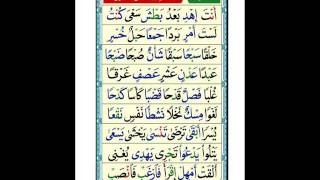 اَنْتَ اِهْدِ بَعْدُ بَطْشَ سَعْیَ كُنْتُ
لَسْتَ اَمْرِ بَرْدًا جَمْعًا حَبْلُ خُسْرٍ
خَلْقًا سَبْحًا سَبْقًا شَاْنٌ صُبْحًا ضَبْحًا
عَبْدًا عَدْنٍ عَشْرٍ عَصْفٍ غَرْقًا
غُلْبًا فَصْلٌ قَدْحًا قَضْبًا كَاْسًا كَدْحًا
لَغْوًا مِسْكٌ نَخْلًا نَشْطًا نَفْسٍ نَقْعًا
يُسْرًا اَلْقٰى تَرْضٰى تَنْسٰى يَخْشٰى يَسْعٰى
يَتْلُوْا يَدْعُوْا تَجْرِىْ يَهْدِىْ يُغْنِىْ
اَلْقَتْ اَمْهِلْ اِقْرَاْ فَارْغَبْ فَانْصَبْ